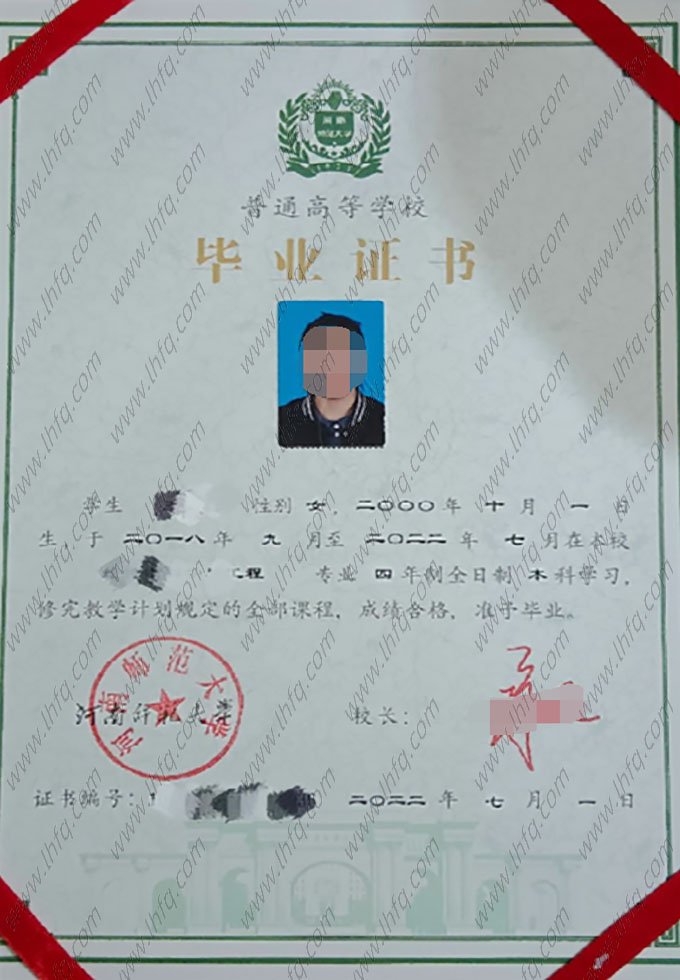 普通高等学校
毕业证书
学生 性别 女，二〇〇〇年 十 月 一 日
生，于 二〇一八年 九 月至 二〇二二 年 七 月在本校
工程 专业 四 年制全日制 本 科学习，
修完教学计划规定的全部课程，成绩合格，准予毕业。
河南师范大学
河南师范大学 校长：
证书编号： 二〇二二 年 七 月 一 日
www.lhfq.com